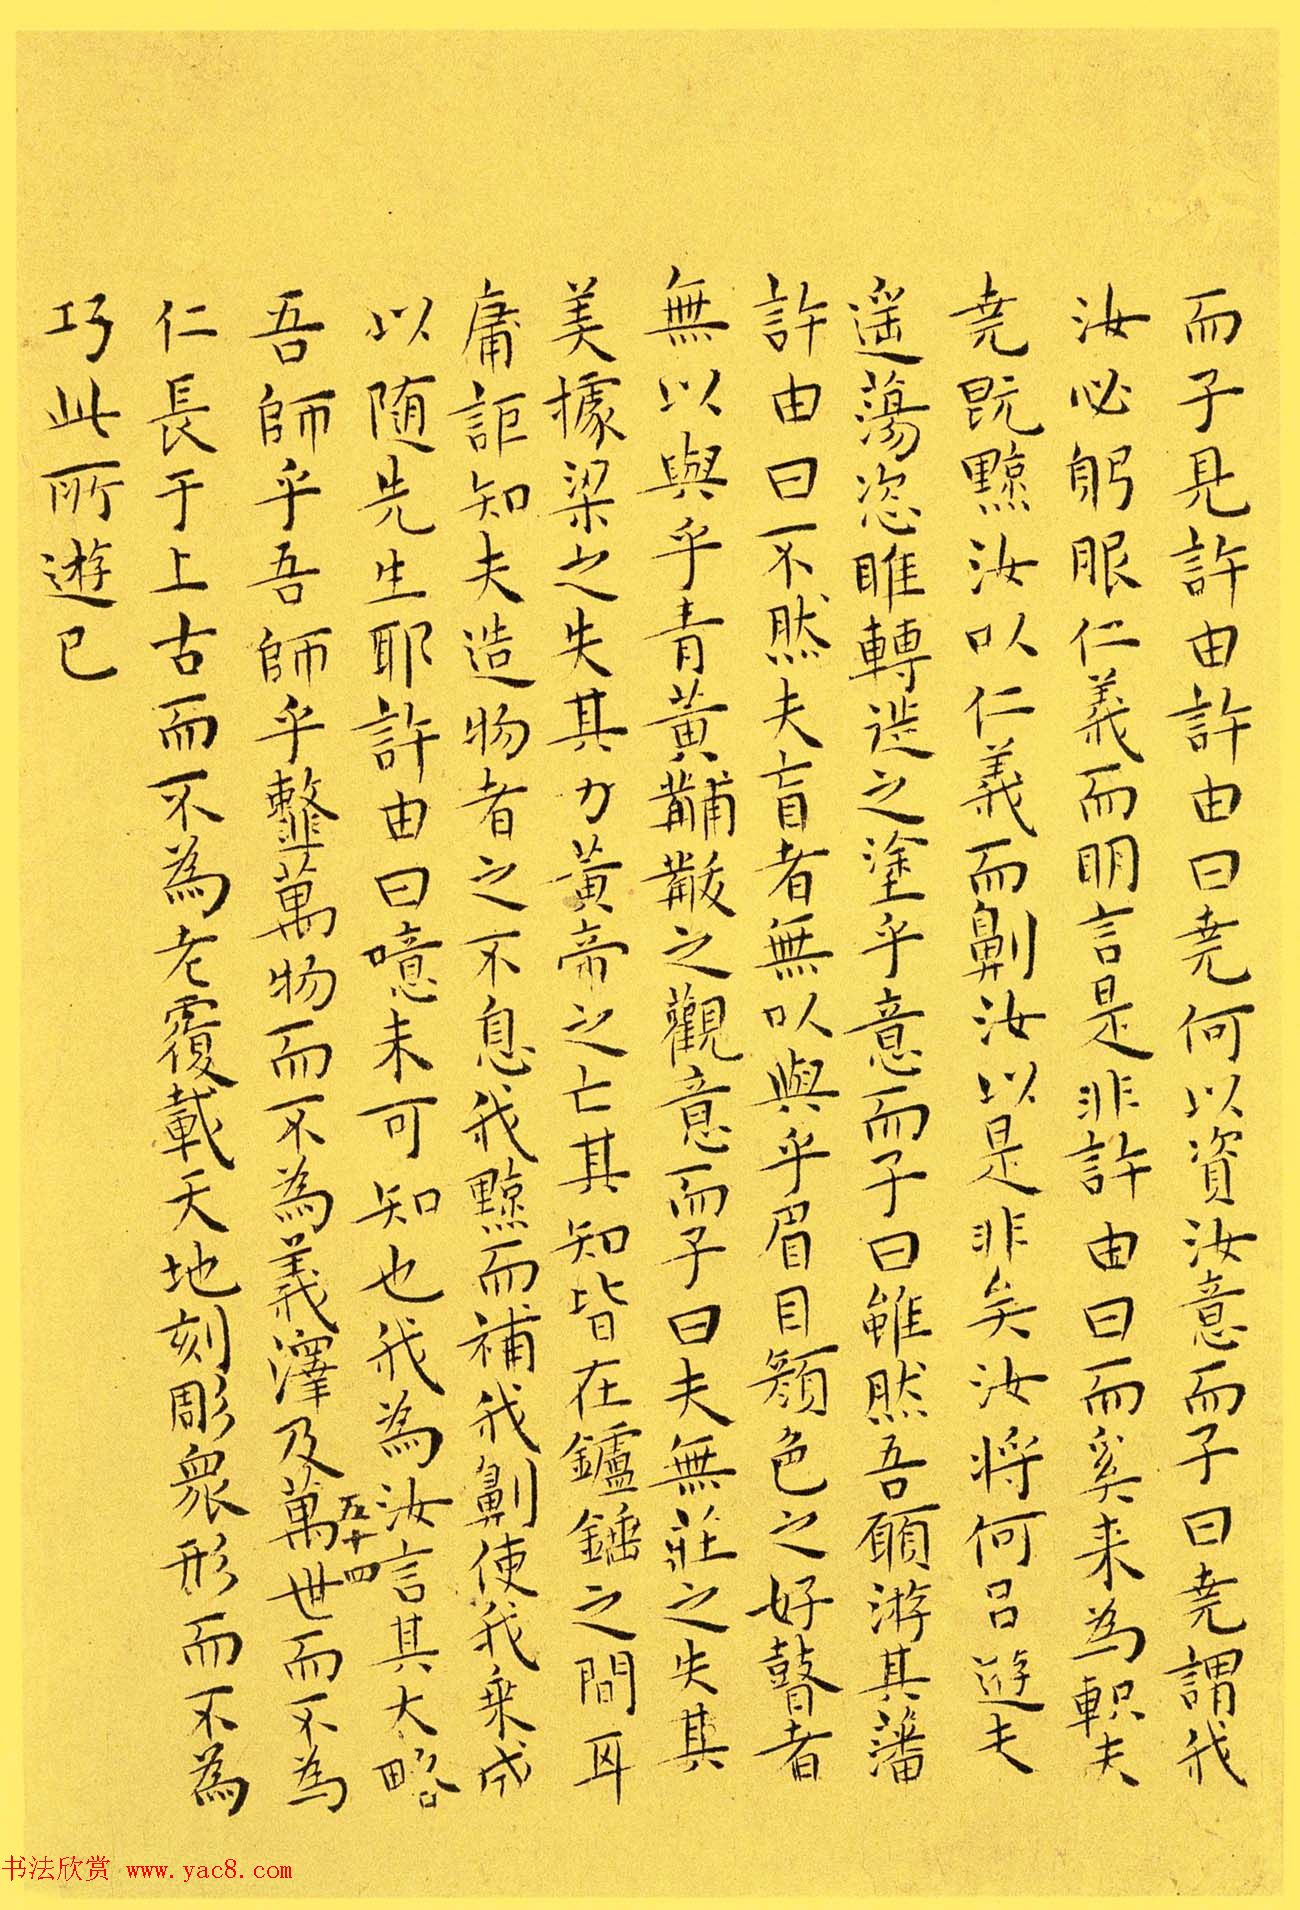 而子見許由許由曰堯何以資汝意而子曰堯謂我
汝必躬服仁義而明言是非許由曰而奚来為軹夫
堯既黥汝以仁義而劓汝以是非矣汝将何㠯遊夫
遥蕩恣睢轉徙之塗乎意而子曰雖然吾願游其藩
許由曰不然夫盲者無以與乎眉目顏色之好瞽者
無以與乎青黃黼黻之觀意而子曰夫無莊之失其
美據梁之失其力黃帝之亡其知皆在鑪錘之間耳
庸詎知夫造物者之不息我黥而補我劓使我乘成
以随先生耶許由曰噫未可知也我為汝言其大略
吾師乎吾師乎韲萬物而不為義澤及萬世而不為
五十四
仁長于上古而不為老覆載天地刻彫衆形而不為
巧此所遊已
书法欣赏 www.yac8.com